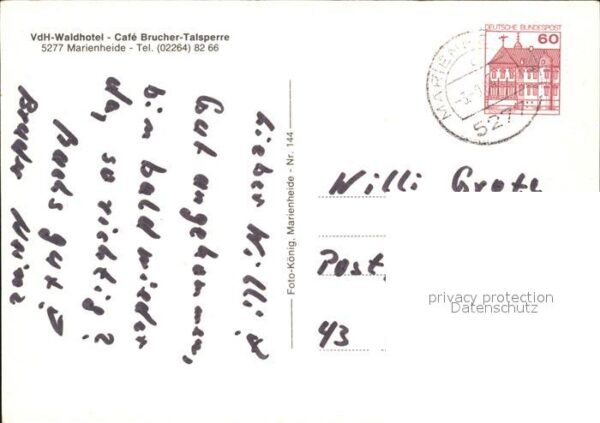 VdH-Waldhotel - Café Brucher-Talsperre
5277 Marienheide - Tel. (02264) 82 66
Lieber Willi!
Gut angekommen,
bin bald wieder
da, so richtig?
Machs gut!
Bruder
Foto-König, Marienheide - Nr. 144
DEUTSCHE BUNDESPOST
60
5277
Willi
Post
43
privacy protection
Datenschutz